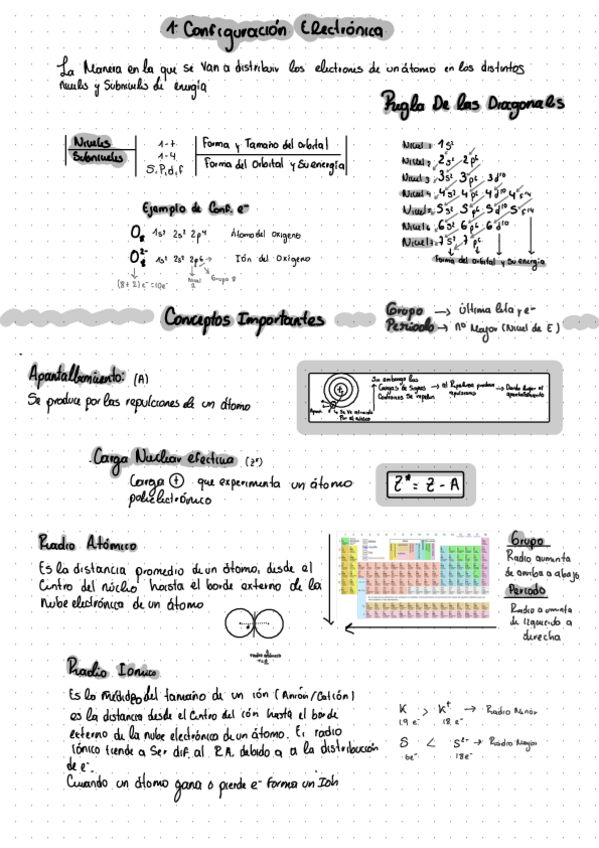 1. Configuración Electrónica
La Manera en la que se van a distribuir los electrones de un átomo en los distintos
niveles y Subniveles de energía
Regla De las Diagonales
Niveles 1-7 Forma y Tamaño del orbital
Subniveles 1-4
S, P, d, f Forma del Orbital y Su energía
Nivel 1 1s²
Nivel 2 2s² 2p⁶
Nivel 3 3s² 3p⁶ 3d¹⁰
Nivel 4 4s² 4p⁶ 4d¹⁰ 4f¹⁴
Nivel 5 5s² 5p⁶ 5d¹⁰ 5f¹⁴
Nivel 6 6s² 6p⁶ 6d¹⁰
Nivel 7 7s² 7p⁶
Forma del orbital y Su energía
Ejemplo de Conf. e⁻
O₈ 1s² 2s² 2p⁴ Átomo del oxigeno
O²⁻ 1s² 2s² 2p⁶ → Ión del Oxigeno
(8+2)e⁻=10e⁻ Nivel 2 Grupo 8
Conceptos Importantes
Grupo → Última letra y e⁻
Periodo → nº Mayor (Nivel de E)
Apantallamiento: (A)
Se produce por las repulciones de un átomo
Sin embargo las
Cargas de Signos
se repelen
Carga Nuclear efectiva (Z*)
Carga (+) que experimenta un átomo
polielectrónico
Z* = Z - A
Radio Atómico
Es la distancia promedio de un átomo, desde el
Centro del núcleo hasta el borde externo de la
Nube electrónica de un átomo
Grupo
Radio aumenta
de arriba a abajo
Periodo
Radio aumenta
de izquierda a
derecha
Radio Ionico
Es la medida del tamaño de un ión (Anión/Catión)
es la distancia desde el Centro del ión hasta el borde
externo de la nube electrónica de un átomo. El radio
iónico tiende a Ser dif. al R.A. debido a a la distribución
de e⁻.
Cuando un átomo gana o pierde e⁻ forma un Ion
K > K⁺ → Radio Menor
19 e⁻ 18 e⁻
S < S²⁻ → Radio Mayor
18e⁻